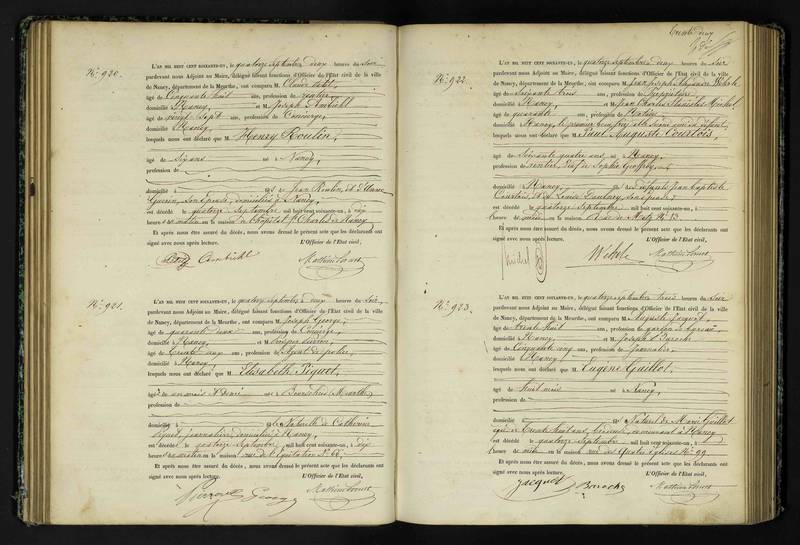 N° 920.
L'AN MIL HUIT CENT SOIXANTE-UN, le quatorze septembre deux heures du Soir
pardevant nous Adjoint au Maire, délégué faisant fonctions d'Officier de l'Etat civil de la ville
de Nancy, département de la Meurthe, ont comparu M. Claude
âgé de Cinquante huit ans, profession de rentier,
domicilié à Nancy, et M. Joseph Ambiehl
âgé de vingt sept ans, profession de Concierge,
domicilié à Nancy,
lesquels nous ont déclaré que M. Henry Roulin,
âgé de Six ans né à Nancy,
profession de
domicilié à fils de Jean Roulin, et d'
Guerin, son épouse, domiciliés à Nancy,
est décédé le quatorze Septembre mil huit cent soixante-un, à dix
heures du matin en la maison à l'hôpital St Charles à Nancy
Et après nous être assuré du décès, nous avons dressé le présent acte que les déclarants ont
signé avec nous après lecture. L'Officier de l'Etat civil,
Ambiehl
N° 921.
L'AN MIL HUIT CENT SOIXANTE-UN, le quatorze septembre à deux heures du Soir,
pardevant nous Adjoint au Maire, délégué faisant fonctions d'Officier de l'Etat civil de la ville
de Nancy, département de la Meurthe, ont comparu M. Joseph George,
âgé de quarante deux ans, profession de Concierge,
domicilié à Nancy, et M. Prosper
âgé de Trente cinq ans, profession de Agent de police,
domicilié à Nancy,
lesquels nous ont déclaré que M. Elisabeth Piquet,
âgé de un mois & demi née à (Meurthe)
profession de
domicilié à fille Naturelle de Catherine
Piquet, journalière, domiciliée à Nancy,
est décédé le quatorze septembre mil huit cent soixante-un, à dix
heures du matin en la maison rue de l'Equitation N° 66.
Et après nous être assuré du décès, nous avons dressé le présent acte que les déclarants ont
signé avec nous après lecture. L'Officier de l'Etat civil,
George
N° 922.
L'AN MIL HUIT CENT SOIXANTE-UN, le quatorze septembre à deux heures du Soir
pardevant nous Adjoint au Maire, délégué faisant fonctions d'Officier de l'Etat civil de la ville
de Nancy, département de la Meurthe, ont comparu M. Jean Joseph Wekele
âgé de Soixante trois ans, profession de Propriétaire,
domicilié à Nancy, et M. Jean Charles Stanislas Michel
âgé de quarante ans, profession de Notaire
domicilié à Nancy, le premier beau frère
lesquels nous ont déclaré que M. Paul Auguste Courtois,
âgé de Soixante quatre ans, né à Nancy,
profession de rentier, Veuf de Sophie Geoffroy,
domicilié à Nancy, fils de défunts Jean baptiste
Courtois, & de Louise Daubrey son épouse,
est décédé le quatorze Septembre mil huit cent soixante-un, à
heure de midi en la maison rue de Metz N° 13
Et après nous être assuré du décès, nous avons dressé le présent acte que les déclarants ont
signé avec nous après lecture. L'Officier de l'Etat civil,
Michel Wekele
N° 923.
L'AN MIL HUIT CENT SOIXANTE-UN, le quatorze septembre trois heures du Soir
pardevant nous Adjoint au Maire, délégué faisant fonctions d'Officier de l'Etat civil de la ville
de Nancy, département de la Meurthe, ont comparu M. Auguste Jacquot,
âgé de trente huit ans, profession de garçon de bureau
domicilié à Nancy, et M. Joseph Baroche
âgé de Cinquante cinq ans, profession de Journalier,
domicilié à Nancy
lesquels nous ont déclaré que M. Eugène Gaillot,
âgé de huit mois né à Nancy,
profession de
domicilié à fils Naturel de Marie Gaillot
âgée de Trente huit ans, demeurant à Nancy
est décédé le quatorze Septembre mil huit cent soixante-un, à
heure de midi en la maison rue des Quatre Eglises N° 99
Et après nous être assuré du décès, nous avons dressé le présent acte que les déclarants ont
signé avec nous après lecture. L'Officier de l'Etat civil,
Jacquot Baroche